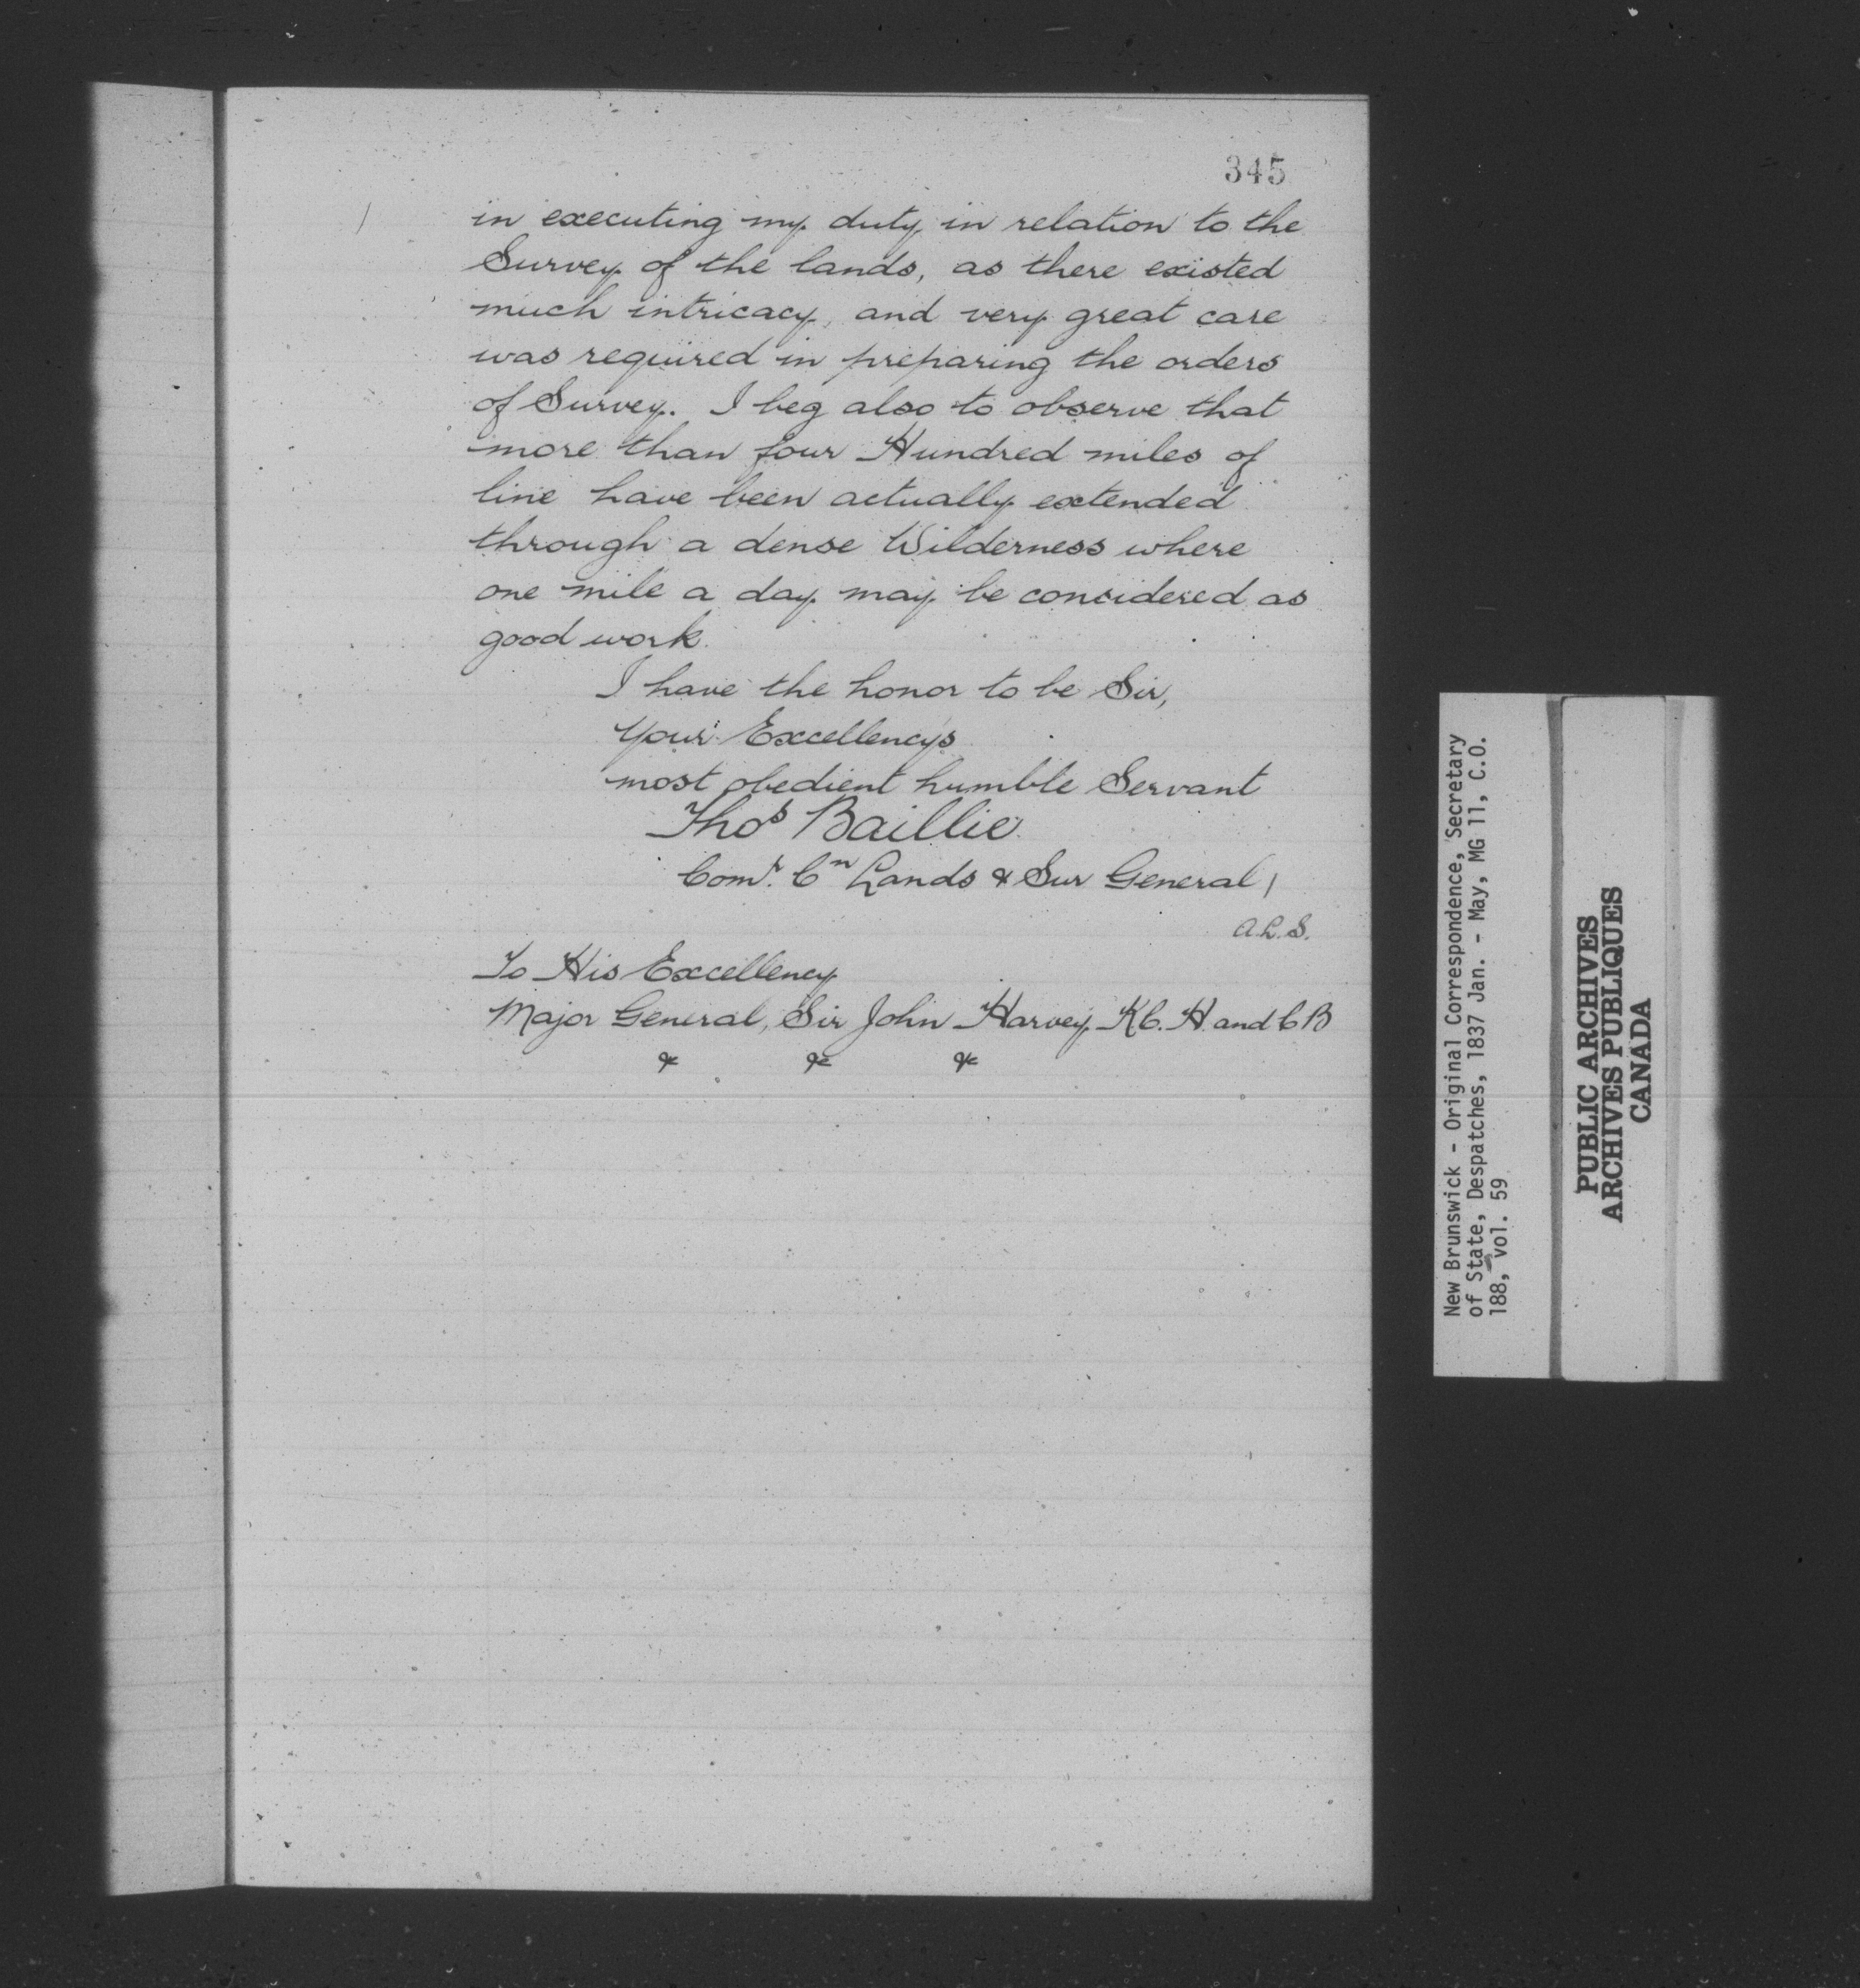 345
in executing my duty in relation to the
Survey of the lands, as there existed
much intricacy, and very great care
was required in preparing the orders
of Survey. I beg also to observe that
more than four Hundred miles of
line have been actually extended
through a dense Wilderness where
one mile a day may be considered as
good work.
I have the honor to be Sir,
Your Excellencys
most obedient humble Servant
Thos Baillie
Comr. Cn Lands & Sur General
A.L.S.
To His Excellency
Major General, Sir John Harvey, K.C.H. and C B
& & &
New Brunswick - Original Correspondence, Secretary
of State, Despatches, 1837 Jan. - May, MG 11, C.O.
188, vol. 59
PUBLIC ARCHIVES
ARCHIVES PUBLIQUES
CANADA